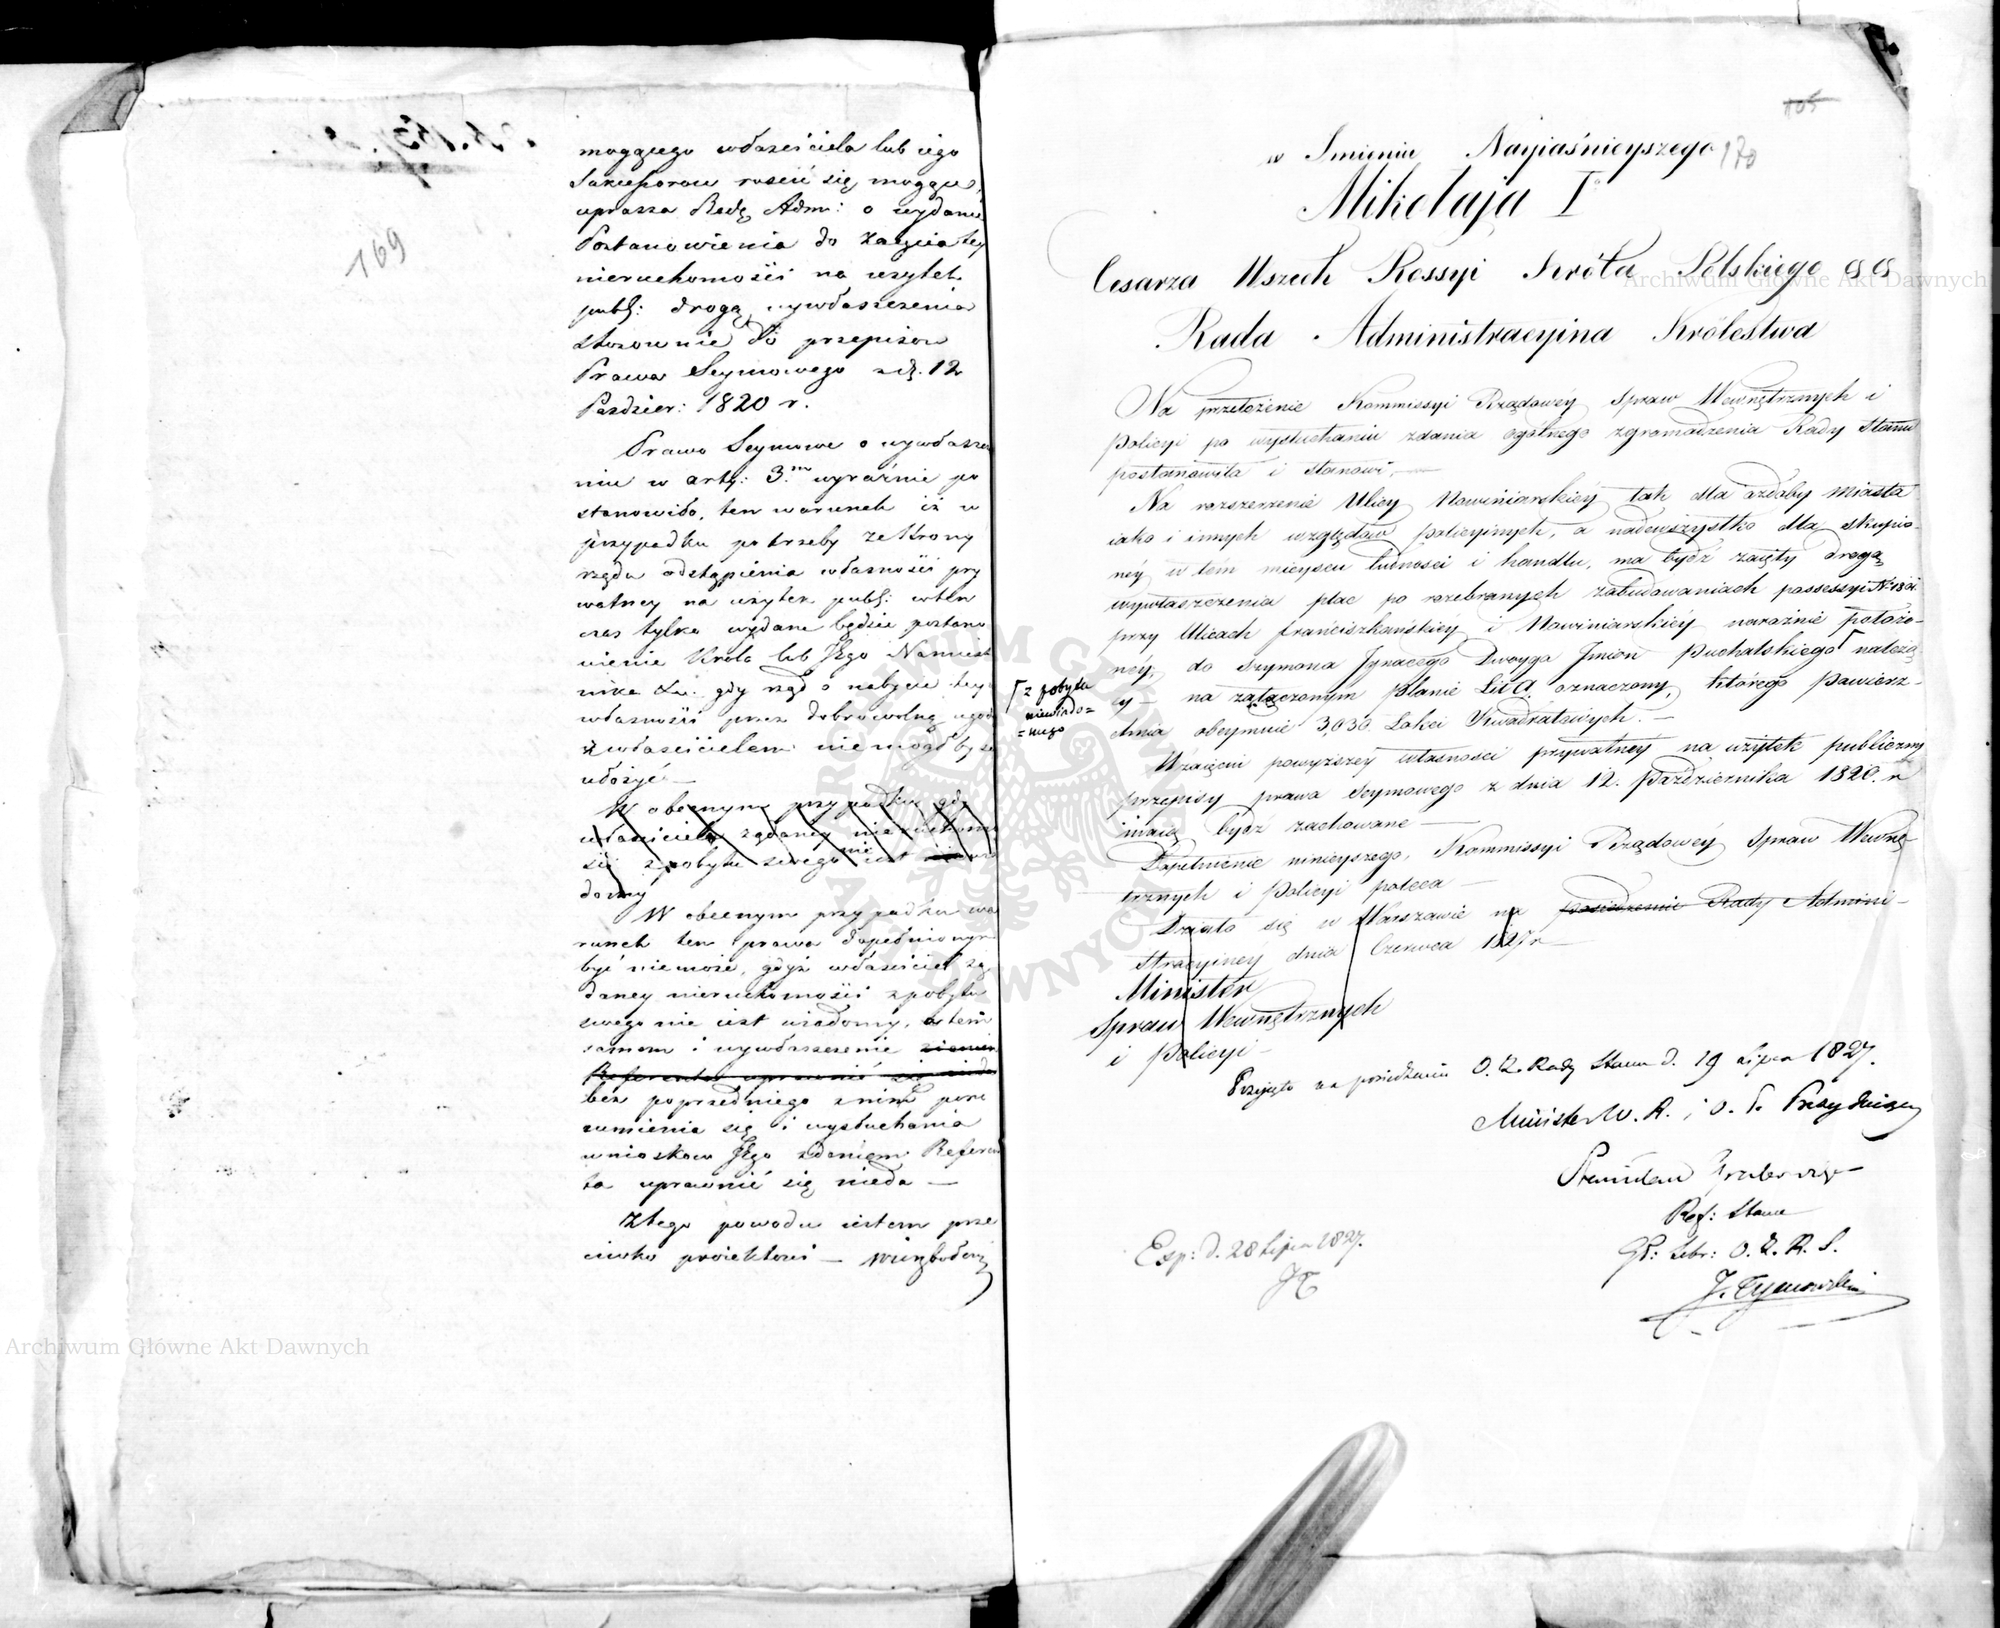 169
mogącego właściciela lub iego
Sukcessorow rościć się mogące,
uprasza Radę Adm: o wydanie
Postanowienia do zaięcia tey
nieruchomości na użytek
publ: drogą wywłaszczenia
stosownie do przepisow
Prawa Seymowego z d. 12
Paździer: 1820 r.
Prawo Seymowe o wywłaszcze
niu w art: 3.m wyraźnie po
stanowiło, ten warunek iż w
przypadku potrzeby ze strony
rządu odstąpienia własności pry
watney na użytek publ: wten
czas tylko wydane będzie postano
wienie Króla lub Jego Namiest
nika gdy rząd o nabycie tey
własności przez dobrowolną ugodę
z właścicielem nie mógłby się
ułożyć —
W obecnym przypadku gdy
właściciel żądaney nieruchomo
ści z pobytu swego nie iest
domy
W obecnym przypadku wa
runek ten prawa dopełnionym
być nie może, gdyż właściciel żą
daney nieruchomości z pobytu
swego nie iest wiadomy, a tem
samem i wywłaszczenie
Referenta uprawnić się nieda
bez poprzedniego z nim poro
zumienia się i wysłuchania
wniosków Jego zdaniem Referen
ta uprawnić się nieda —
Z tego powodu iestem prze
ciwko proiektowi — Wierzbołowicz
105
170
w Imieniu Nayiaśnieyszego
Mikołaja I°
Cesarza Wszech Rossyi Króla Polskiego &c &c
Rada Administracyjna Królestwa
Na przełożenie Kommissyi Rządowéy Spraw Wewnętrznych i
Policyi po wysłuchaniu zdania ogólnego zgromadzenia Rady Stanu
postanowiła i stanowi, —
Na rozszerzenie Ulicy Nawiniarskiéy tak dla ozdoby miasta
iako i innych względów policyinych, a nadewszystko dla skupio-
néy w tem mieyscu ludności i handlu, ma bydź zaięty drogą
wywłaszczenia plac po rozebranych zabudowaniach possessyi Nr 1801
przy Ulicach franciszkańskiey i Nawiniarskiéy narożnie położo-
néy, do Szymona Ignacego Dwoyga Imion Puchalskiego należą
cy — na załączonym planie Lit. A. oznaczony, którego powierz-
chnia obeymuie 3,030 Łokci Kwadratowych. —
⌈ z pobytu
niewiado=
=mego
W zaięciu powyższey własnosci prywatnéy na użytek publiczny
przepisy prawa Seymowego z dnia 12. Października 1820. r
maią bydź zachowane —
Dopełnienie ninieyszego, Kommissyi Rządowéy Spraw Wewnę-
trznych i Policyi poleca —
Działo się w Warszawie na posiedzeniu Rady Admini-
stracyiney dnia Czerwca 1827 r —
Minister
Spraw Wewnętrznych
i Policyi —
Przyjęto na posiedzeniu O. Z. Rady Stanu d. 19 Lipca 1827.
Minister W. R. i O. P. Prezyduiący
Stanisław Grabowski
Ref: Stanu
Gł: Sekr: O. Z. R. S.
J. Tymowski
Exp: d. 28 Lipca 1827.
JT
Archiwum Główne Akt Dawnych
Archiwum Główne Akt Dawnych
ARCHIWUM GŁÓWNE AKT DAWNYCH